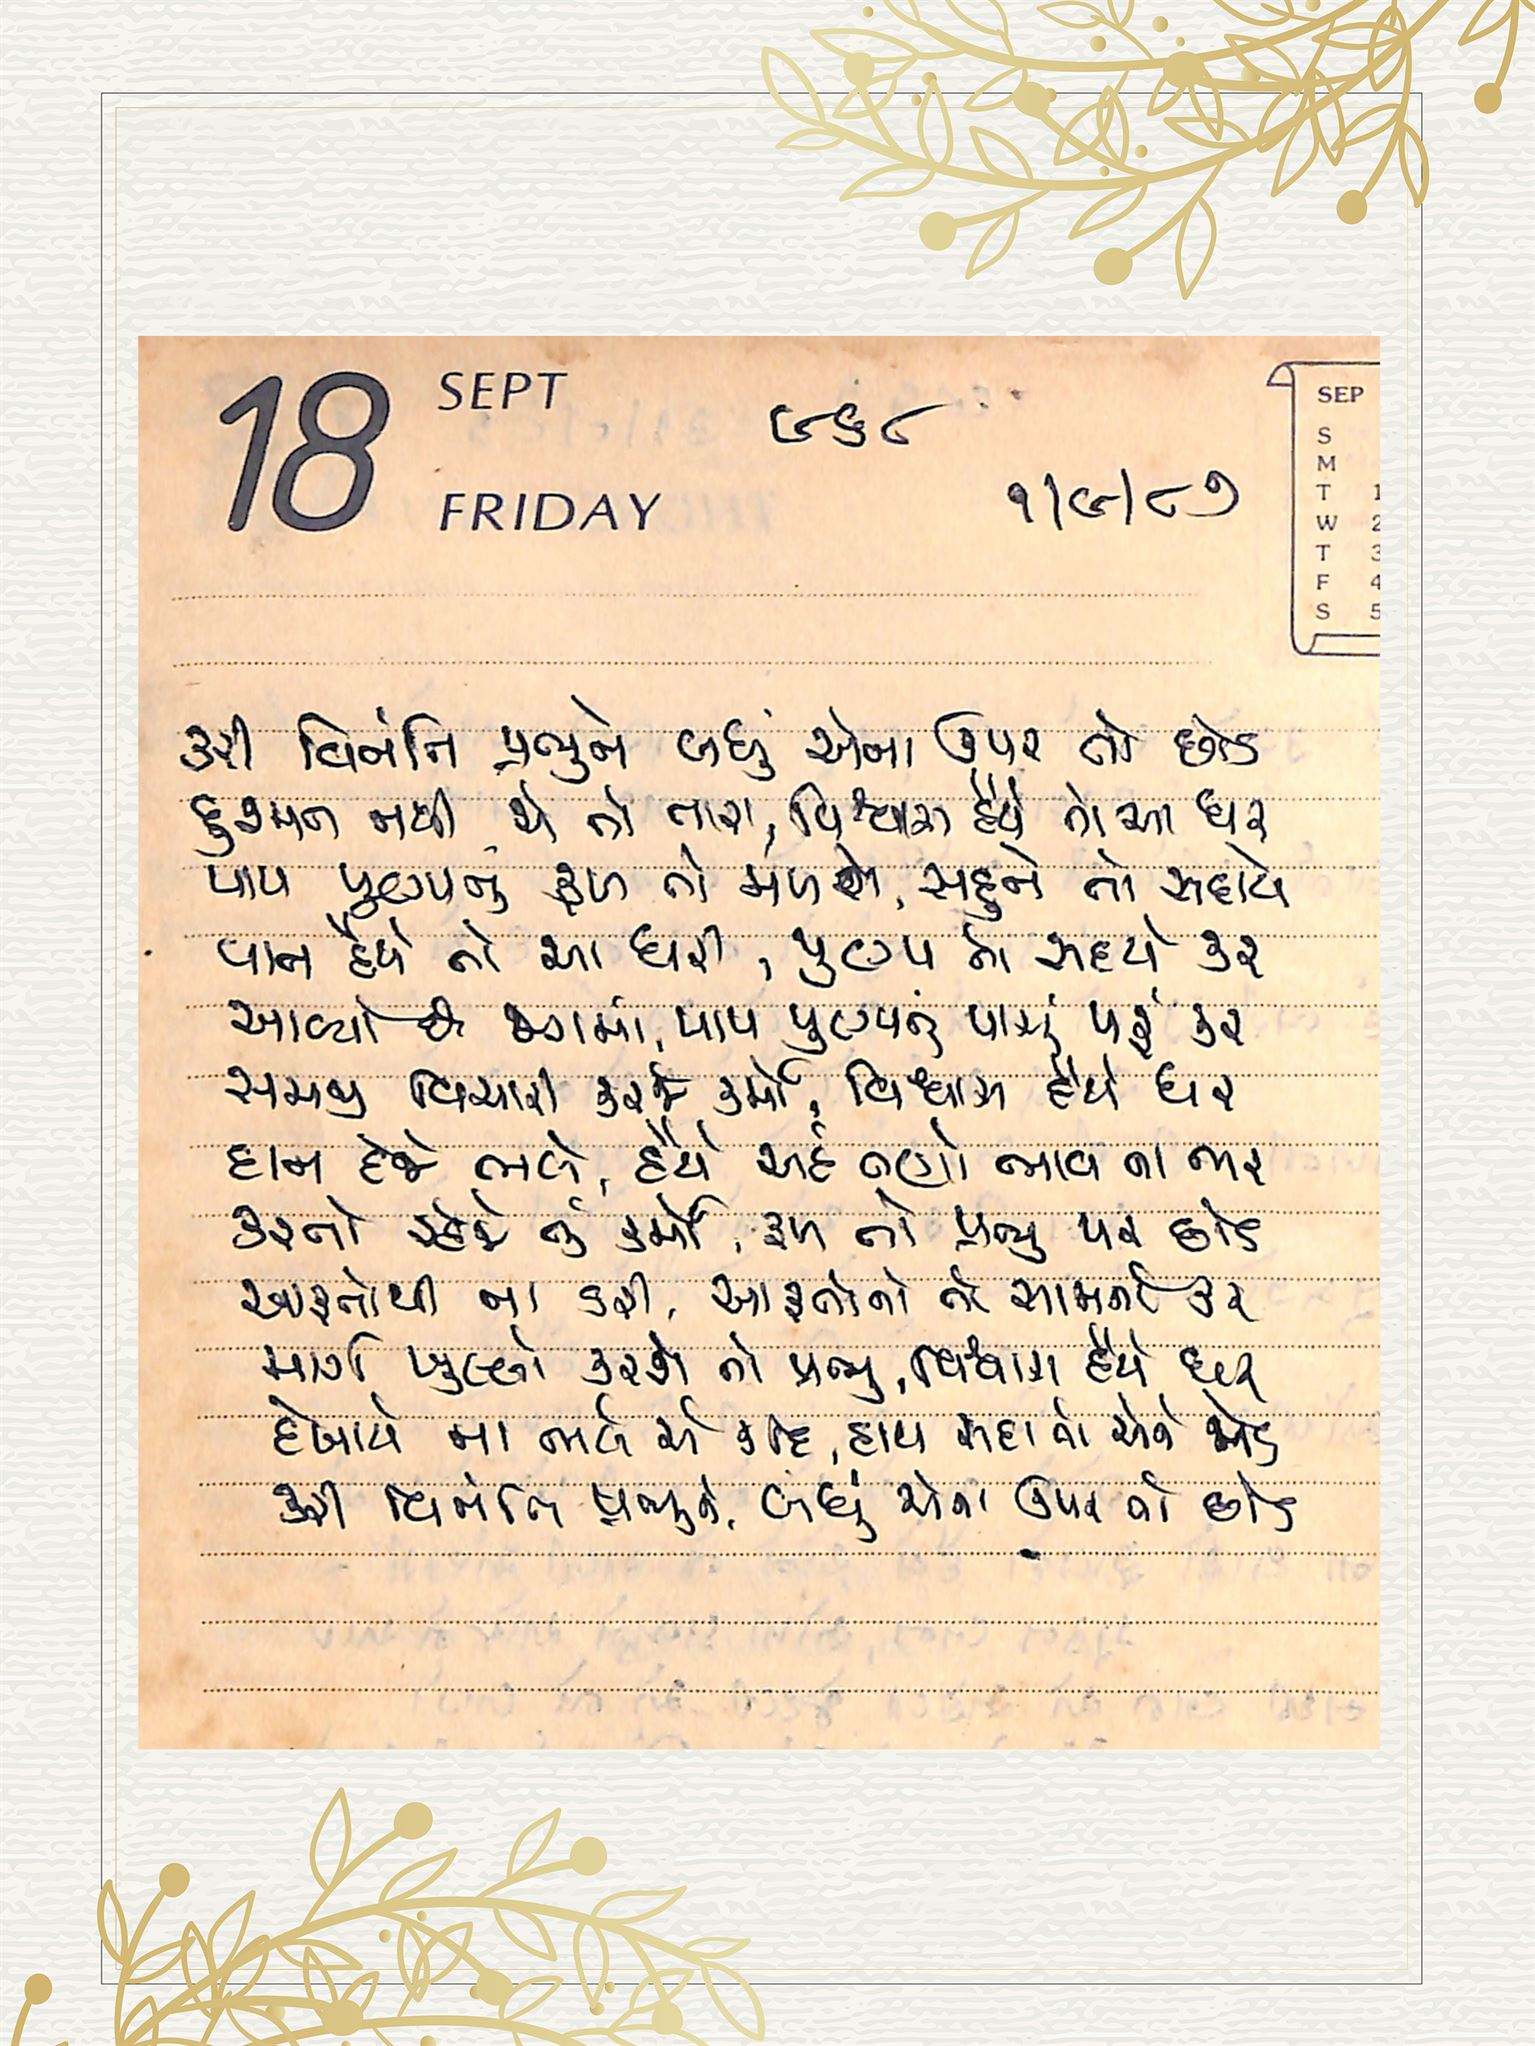 18
SEPT
FRIDAY
૯૬૮
૧/૯/૮૭
SEP
S
M
T 1
W 2
T 3
F 4
S 5
કરી વિનંતિ પ્રભુને બધું એના ઉપર તો છોડ
દુશ્મન નથી એ તો તારા, વિશ્વાસ હૈયે તો આ ધર
પાપ પુણ્યનું ફળ તો મળશે, સહુને તો સદાયે
વાત હૈયે તો આ ધરી, પુણ્ય તો સદાયે કર
આવ્યો છે જગમાં, પાપ પુણ્યનું પાસું પરું કર
સમજી વિચારી કરજે કર્મો, વિશ્વાસ હૈયે ધર
દાન દેજે ભલે, હૈયે અહં તણો ભાવ ના ભર
કરતો રહેજે તું કર્મો, ફળ તો પ્રભુ પર છોડ
આફતોથી ના ડરી, આફતોનો તો સામનો કર
માર્ગ ખુલ્લો કરશે તો પ્રભુ, વિશ્વાસ હૈયે ધર
દેખાયે ના ભલે એ કદિ, હાથ સદા તો એને જોડ
કરી વિનંતિ પ્રભુને, બધું એના ઉપર તો છોડ